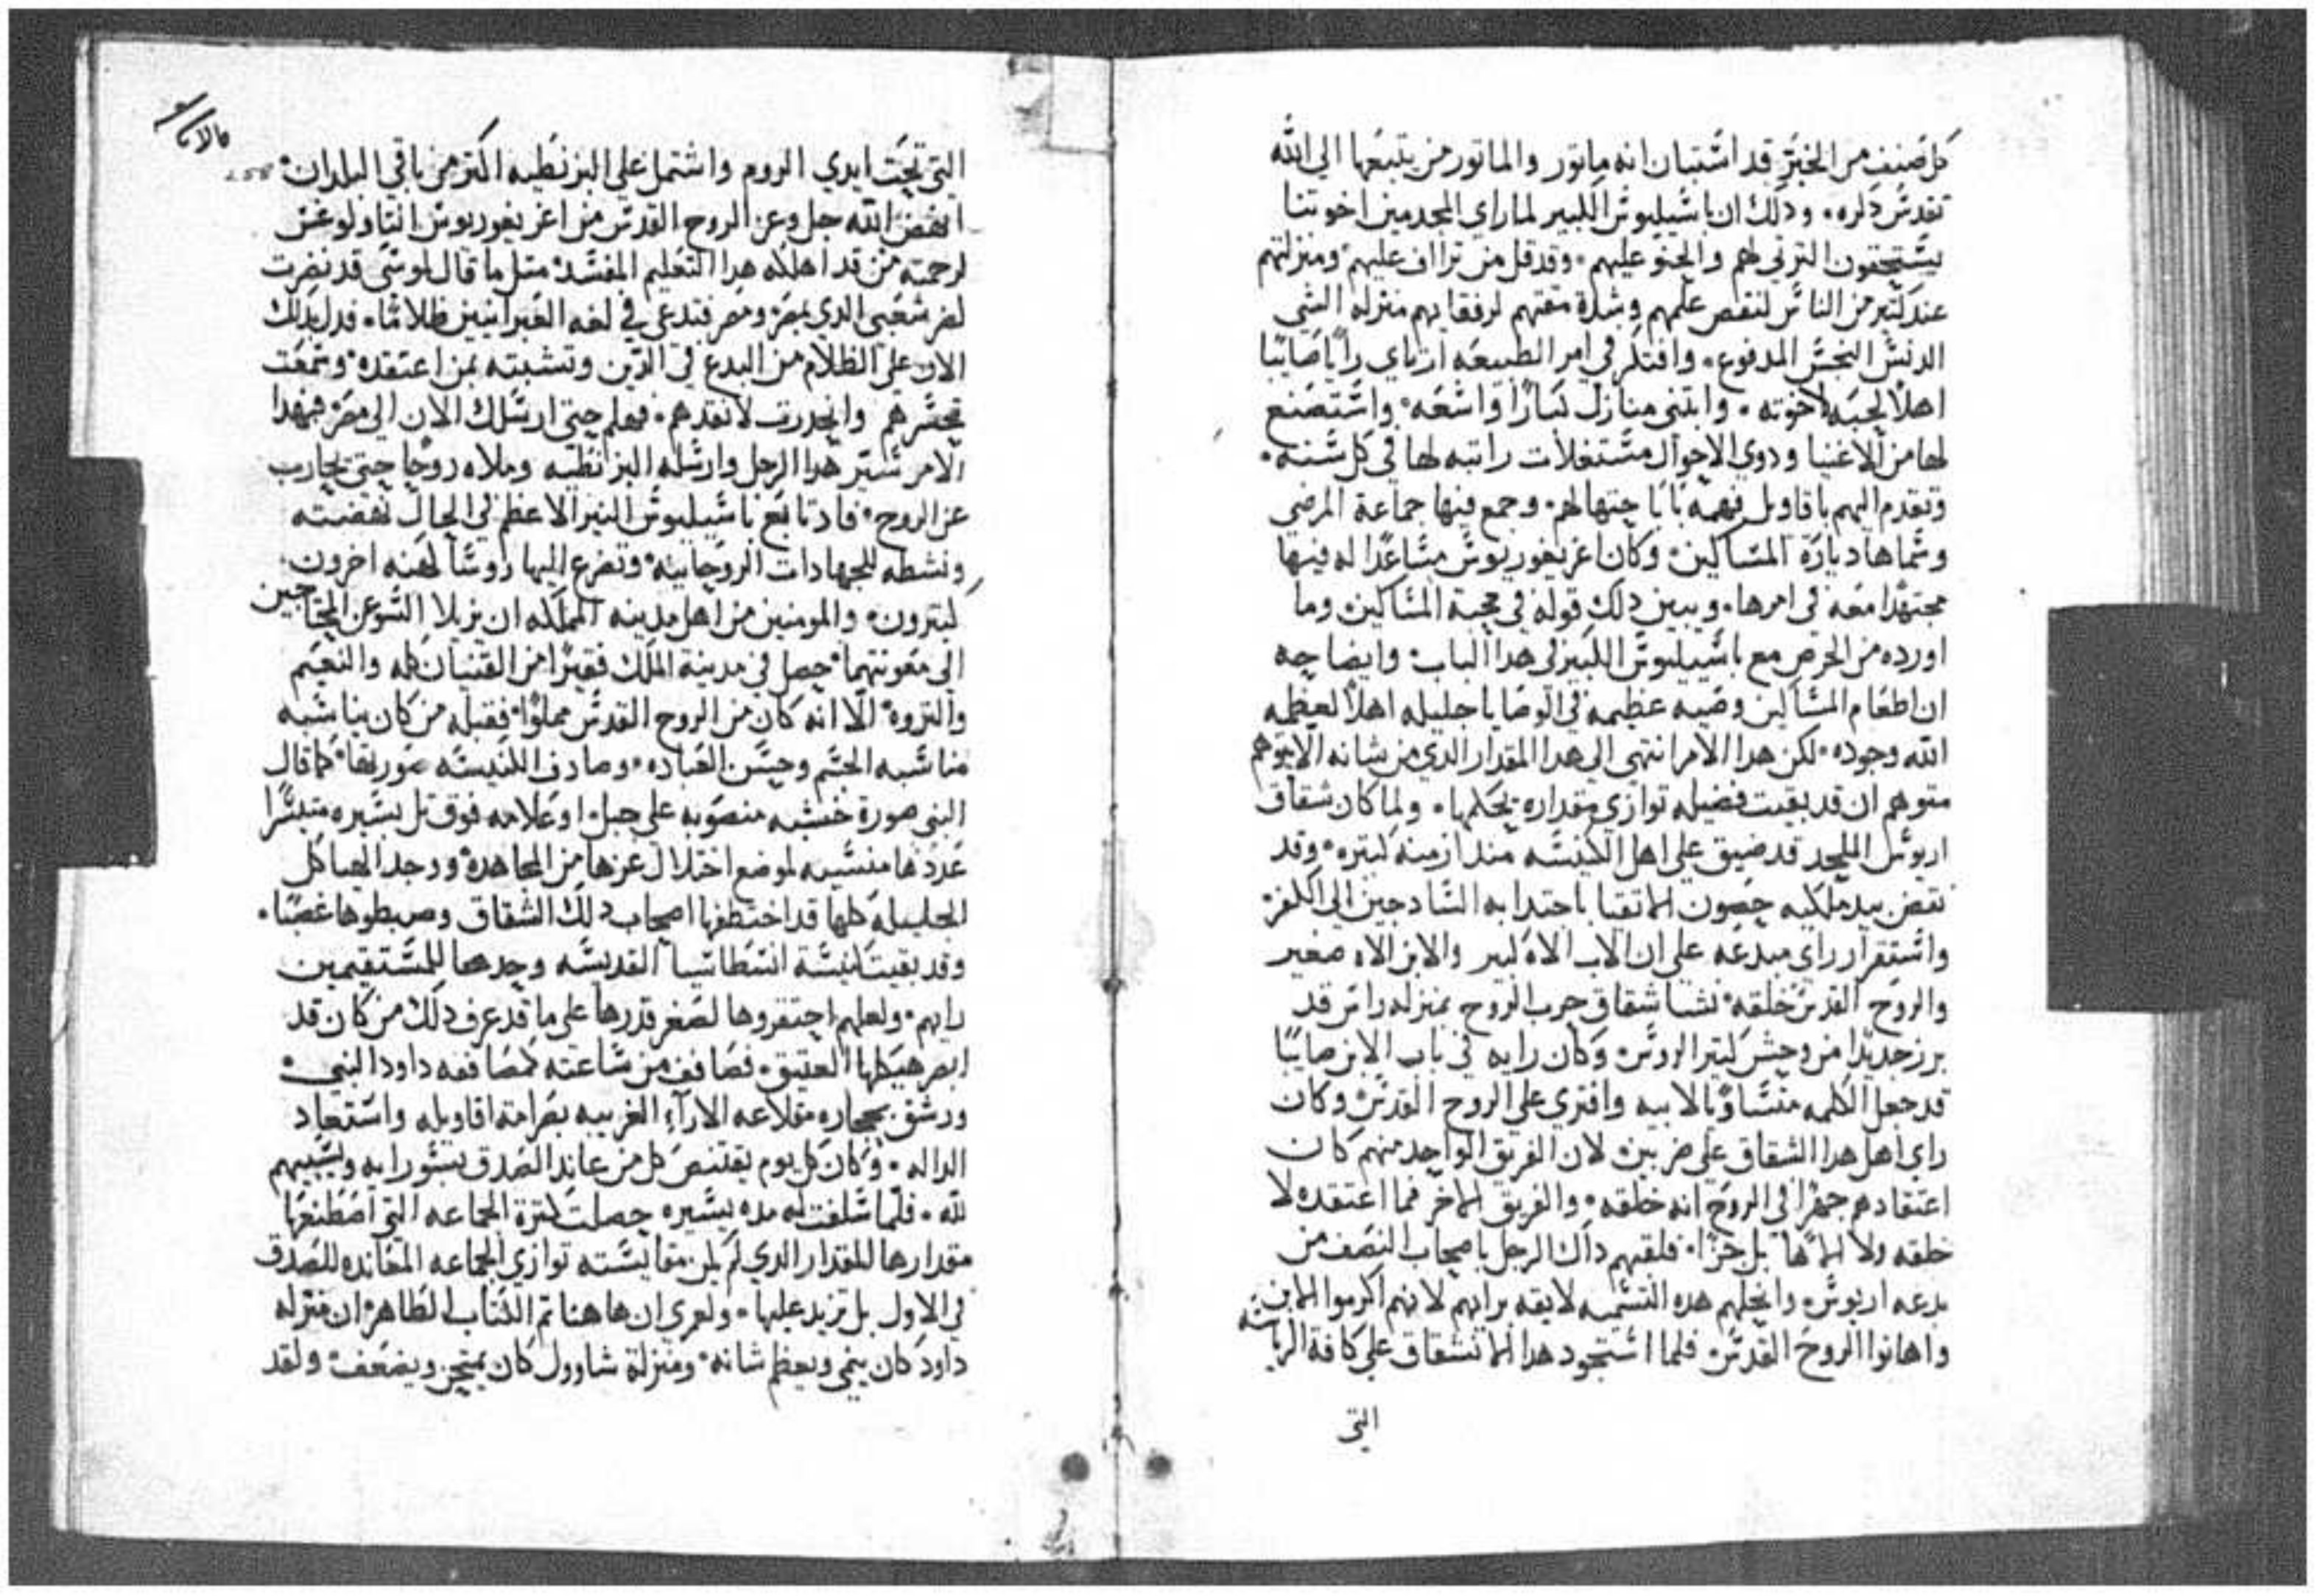 كل صنف من الخير قد استبان انه ماتور والماتور من يتبعها الي الله
تقدس دكره. ودلك ان باسيليوس الكبير لما راي المجدمين اخوتنا
يستحقون الترتي لهم والحنو عليهم. وقد قل من تراف عليهم ومنزلتهم
عند كتير من الناس لنقص علمهم وشدة مقتهم لرفقايهم منزله الشي
الدنس النجس المدفوع. وافتكر في امر الطبيعه ارتاي راياً صايبا
اهلا لحبه لاخوته. وابتني منازل كبارًا واسعه. واستصنع
لها من الاغنيا ودوي الاحوال مستغلات راتبه لها في كل سنه.
وتقدم اليهم باقاويل فهمه بابا حتها لهم. وجمع فيها جماعة المرضي
وسماها ديارة المساكين. وكان اغريغوريوس مساعدًا له فيها
مجتهدا معه في امرها. ويبين دلك قوله في محبة المساكين. وما
اورده من الحرص مع باسيليوس الكبير في هدا الباب. وايضاحه
ان اطعام المساكين وصيه عظيمه في الوصايا جليله اهلا لعظمه
الله وجوده. لكن هدا الامر انتهي الي هدا المقدار الدي من شانه الا يتوهم
متوهم ان قد بقيت فضيله توازي مقداره بحكمها. ولما كان شقاق
اريوس الملحد قد ضيق علي اهل الكنيسه مند ازمنه كتيره. وقد
نقض بيد ملكيه حصون الاتقيا باجتدابه السادجين الي الكفر.
واستقرار راي مبدعه علي ان الاب الاه كبير والابن الاه صغير
والروح القدس خلقه. نشا شقاق حرب الروح بمنزله راس قد
برز حديدا من وحش كتير الروس. وكان رايه في باب الابن صايبًا
قد جعل الكلمه متساوً بالابيه وافتري علي الروح القدس وكان
راي اهل هدا الشقاق علي ضربين. لان الفريق الواحد منهم كان
اعتقادهم جهرًا في الروح انه خلقه. والفريق الاخر فما اعتقده لا
خلقه ولا الاهًا بل جزا. فلقبهم داك الرجل باصحاب النصف من
بدعه اريوس. وانحلهم هده التسميه لايقه برايهم لانهم اكرموا الابن
واهانوا الروح القدس. فلما استحود هدا الانشقاق علي كافة الرياسه
التي
التي تحت ايدي الروم واشتمل علي البزنطيه اكتر من باقي البلدان.
انهض الله جل وعز الروح القدس من اغريغوريوس انتاولوغس
لرحمته من قد اهلكه هدا التعليم المفسد. متل ما قال لموسي قد نضرت
لضر شعبي الدي بمصر ومصر فتدعي في لغه العبرانيين ظلاما. فدل بدلك
الان علي الظلام من البدع في الدين وتشبته بمن اعتقده. وسمعت
تحسرهم وانحدرت لانقدهم. فهلم حتي ارسلك الان الي مصر. فبهدا
الامر سير هدا الرجل وارسله البزانطيه وملاه روحًا حتي يحارب
عن الروح. فاد تابع باسيليوس النير الاعظم في الحال نهضته
ونشطه للجهادات الروحانيه. وتضرع اليها روسا كهنه اخرون
كتيرون. والمومنين من اهل مدينه المملكه ان يزيلا السو عن المحتاجين
الي معونتهما. حصل في مدينة الملك فقيرًا من القنيان كله والنعيم
والتروه. الا انه كان من الروح القدس مملوًا. فقبله من كان يناسبه
مناسبه الجسم وحسن العباده. وصادف الكنيسه صورتها كما قال
النبي صورة خشبه منصوبه علي جبل او علامه فوق تل يسيره متيسرًا
عددها منسيه لموضع اختلال عزها من المجاهده. ووجد الهياكل
الجليله كلها قد اختطفها اصحاب دلك الشقاق وضبطوها غصبًا.
وقد بقيت كنيسة انسطاسيا القديسه وحدها للمستقيمين
رايهم. ولعلهم احتقروها لصغر قدرها علي ما قد عرف دلك من كان قد
ابصر هيكلها العتيق. فصافف من ساعته كمصاففه داود النبي.
ورشق بحجاره مقلاعه الاراء الغريبه بصرامة اقاويله واستعاد
الداله. وكان كل يوم يقتنص كل من عاند الصدق بسو رايه ويسبيهم
لله. فلما سلفت له مده يسيره حصلت كترة الجماعه التي اصطنعها
مقدارها المقدار الدي لم يكن مقايسته توازي الجماعه المعانده للصدق
في الاول بل تزيد عليها. ولعمري ان هاهنا تم الكتاب الظاهر ان منزله
داود كان ينمي ويعظم شانه. ومنزلة شاوول كان يمتحن ويضعف. ولقد